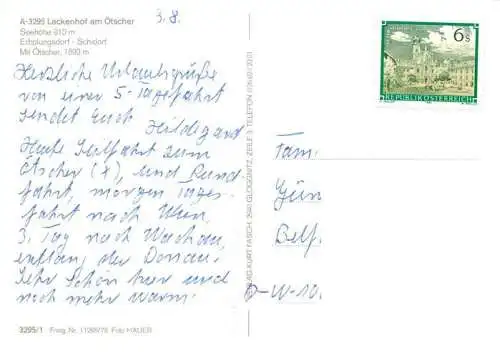 A-3295 Lackenhof am Ötscher
Seehöhe 810 m
Erholungsdorf - Schidorf
Mit Ötscher, 1893 m
3.8.
Herzliche Urlaubsgrüße
von einer 5-Tagefahrt
sendet Euch
Hildegard
Heute Seilfahrt zum
Ötscher (X), und Rund
fahrt, morgen Tages-
fahrt nach Wien,
3. Tag nach Wachau,
entlang der Donau.
Sehr schön hier und
noch mehr warm.
3295/1 Freig. Nr. Foto HAUER
VERLAG KURT FASCH, 2640 GLOGGNITZ, ZEILE 3, TELEFON
6 S
REPUBLIK ÖSTERREICH
Fam.
Gün
Belf.
D-W-10.